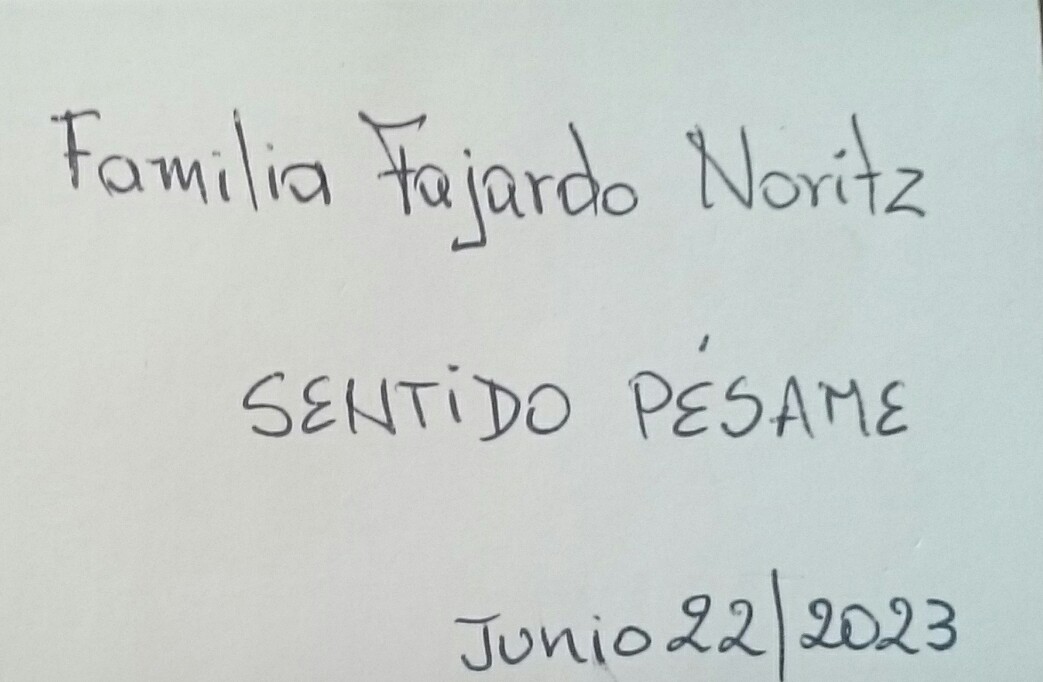 Familia Fajardo Noritz
SENTIDO PÉSAME
Junio 22/2023